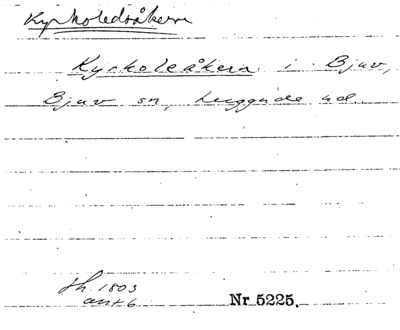 Kyrkoledsåkern
Kyrkoleåkern i Bjuv,
Bjuv sn, Luggude hd
sh. 1803
akt 6
Nr 5225.